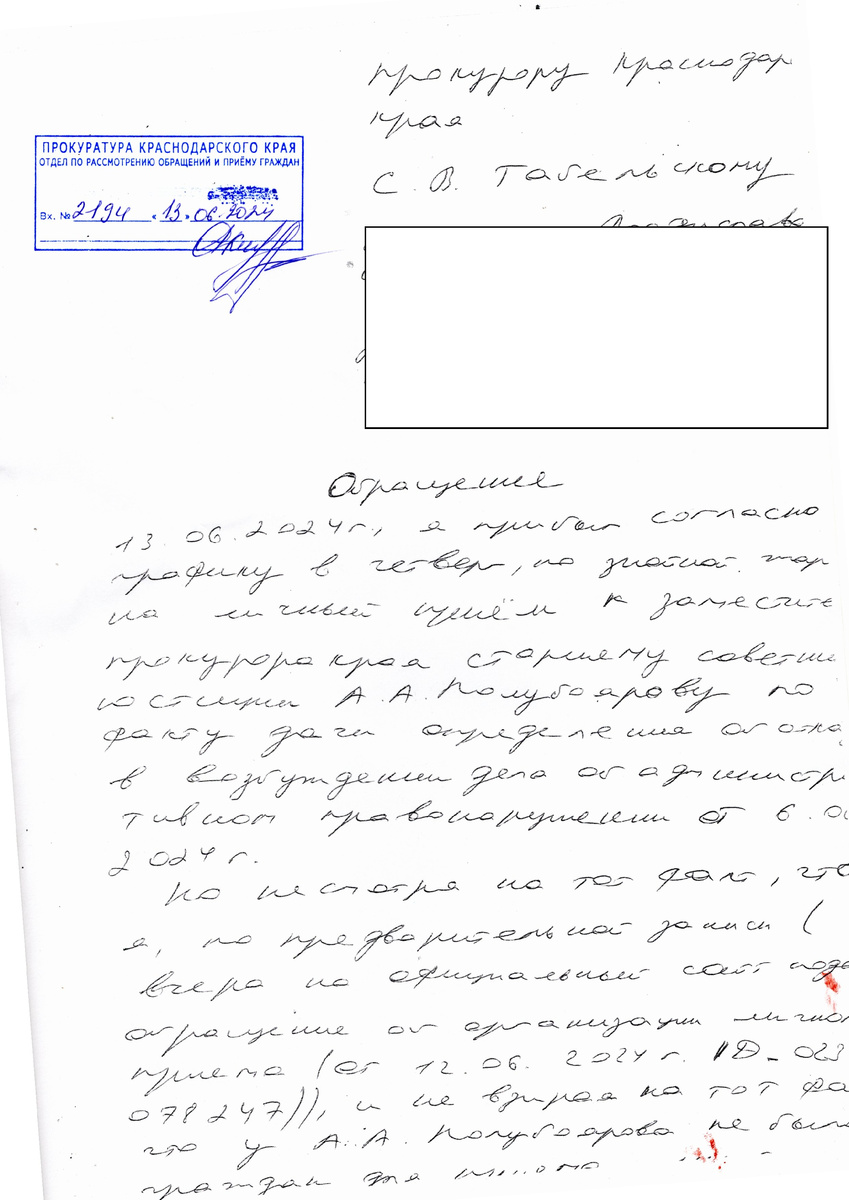 прокурору Краснодар
края
ПРОКУРАТУРА КРАСНОДАРСКОГО КРАЯ
ОТДЕЛ ПО РАССМОТРЕНИЮ ОБРАЩЕНИЙ И ПРИЁМУ ГРАЖДАН
С. В. Табельскому
Вх. № 2194 «13» 06.2024
Обращение
13.06.2024г., я прибыл согласно
графику в четверг, по знойной жар
на личный приём к заместите
прокурора края старшему советни
юстиции А.А. Полубоярову по
факту дачи определения об отка
в возбуждении дела об администра
тивном правонарушении от 6.0
2024 г.
Но несмотря на тот факт, что
я, по предварительной записи (
вчера на официальный сайт пода
обращение об организации лично
приема (от 12.06.2024г. ID_023
078247)), и не взирая на тот фа
что у А.А. Полубоярова не было
граждан для